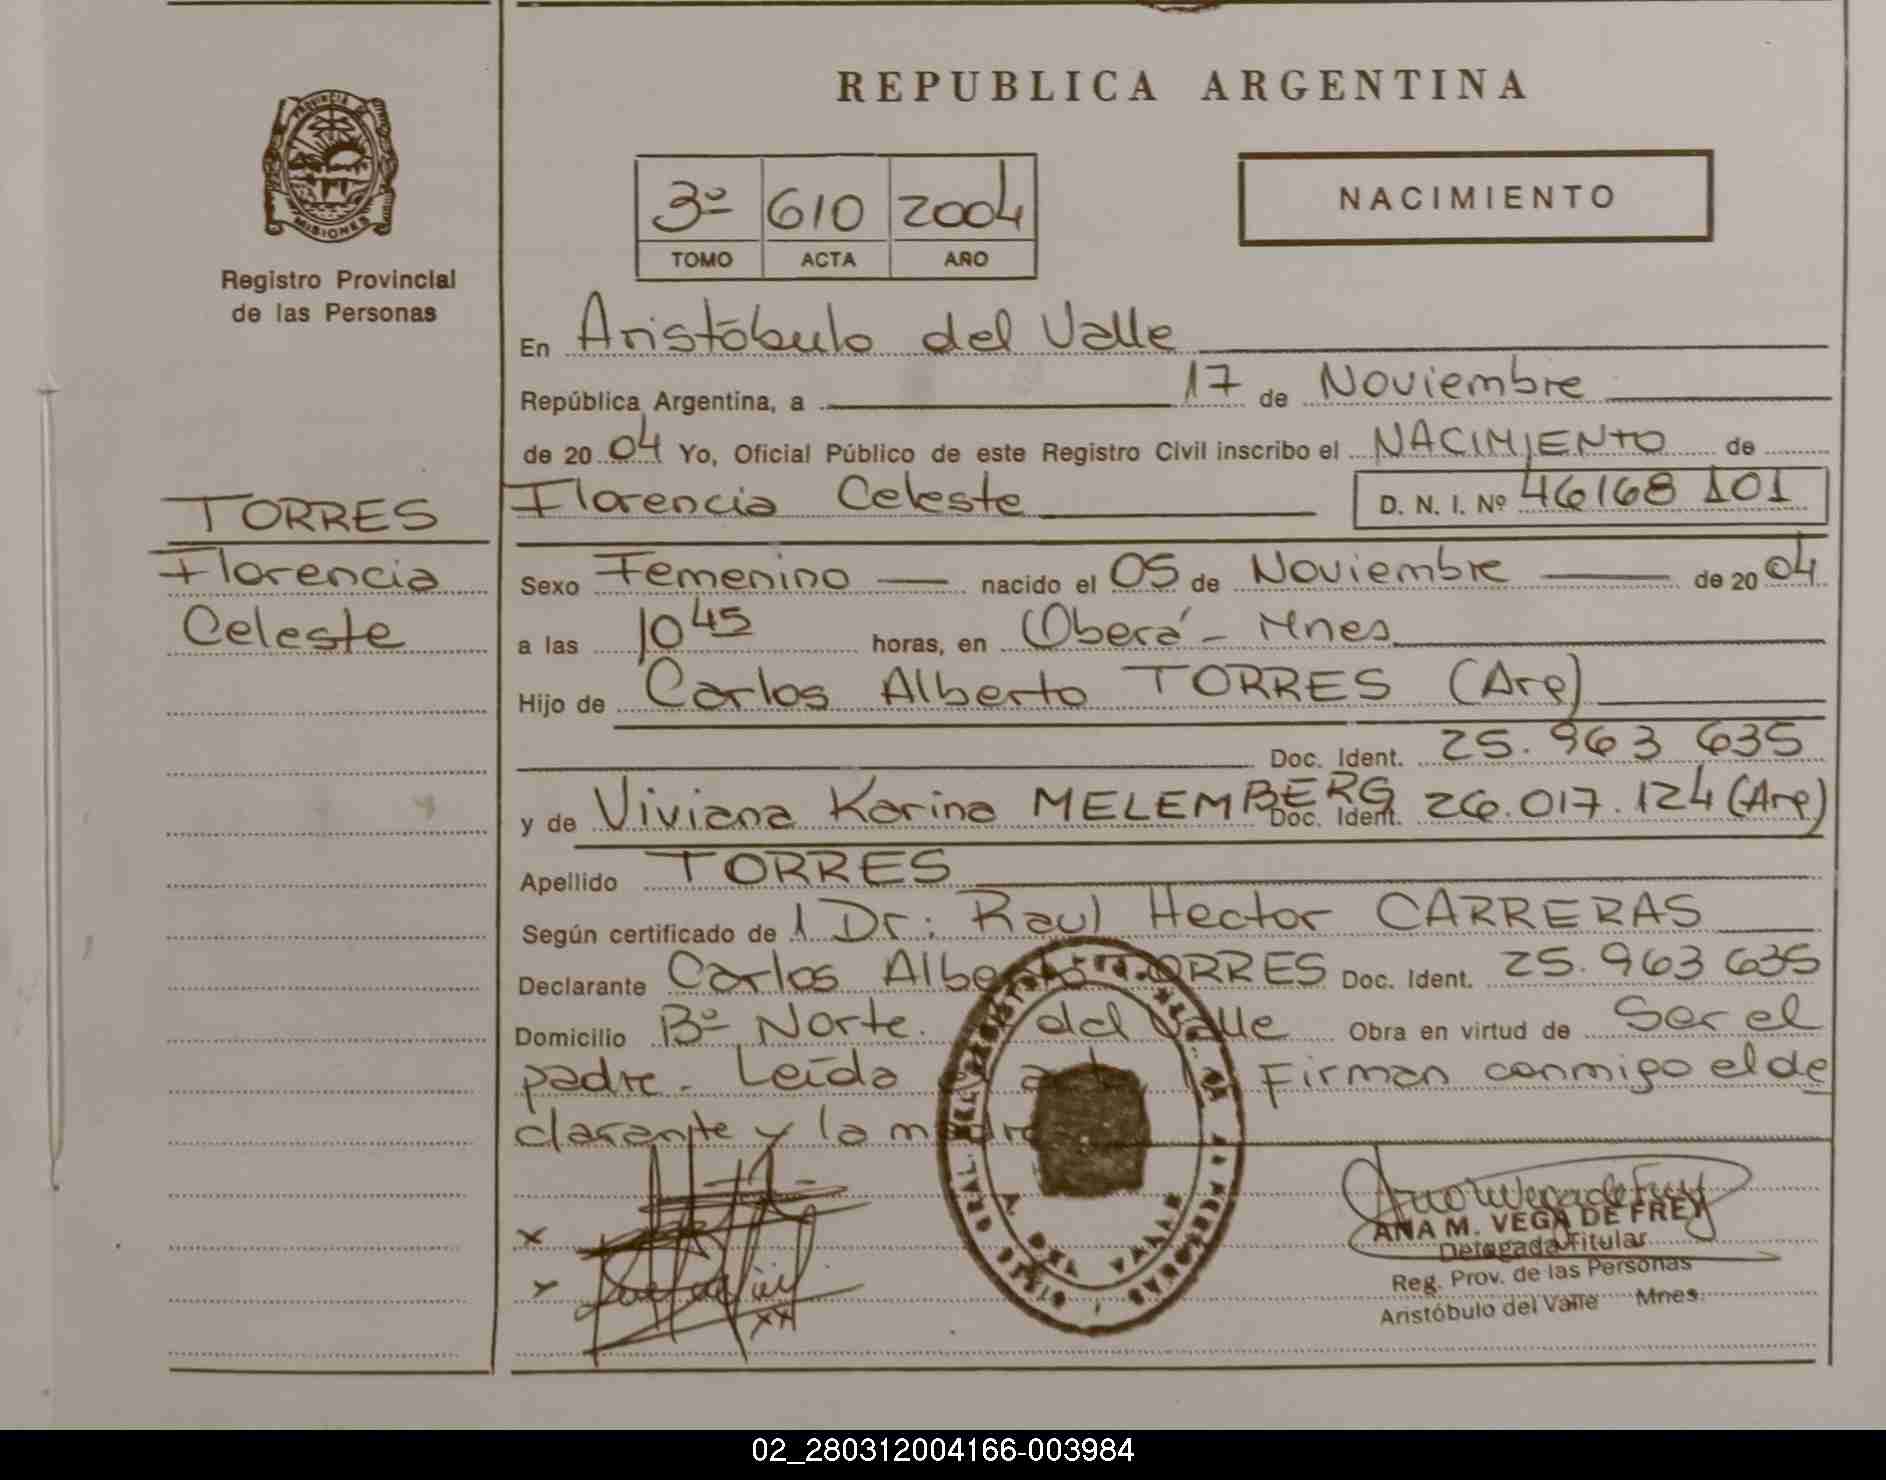 REPUBLICA ARGENTINA
PROVINCIA DE
MISIONES
Registro Provincial
de las Personas
3º 610 2004
TOMO ACTA AÑO
NACIMIENTO
En Aristóbulo del Valle
República Argentina, a 17 de Noviembre
de 20 04 Yo, Oficial Público de este Registro Civil inscribo el NACIMIENTO de
Florencia Celeste D. N. I. Nº 46168 101
TORRES
Florencia
Celeste
Sexo Femenino nacido el 05 de Noviembre de 20 04
a las 10 45 horas, en Oberá - Mnes
Hijo de Carlos Alberto TORRES (Arg)
Doc. Ident. 25.963 635
y de Viviana Karina MELEMBERG Doc. Ident. 26.017.124 (Arg)
Apellido TORRES
Según certificado de 1 Dr: Raul Hector CARRERAS
Declarante Carlos Alberto TORRES Doc. Ident. 25.963 635
Domicilio Bº Norte. del Valle Obra en virtud de Ser el
padre. Leída Firman conmigo el de
clarante y la madre
x
x
ANA M. VEGA DE FREY
Delegada Titular
Reg. Prov. de las Personas
Aristóbulo del Valle Mnes.
A. DEL VALLE
02_280312004166-003984